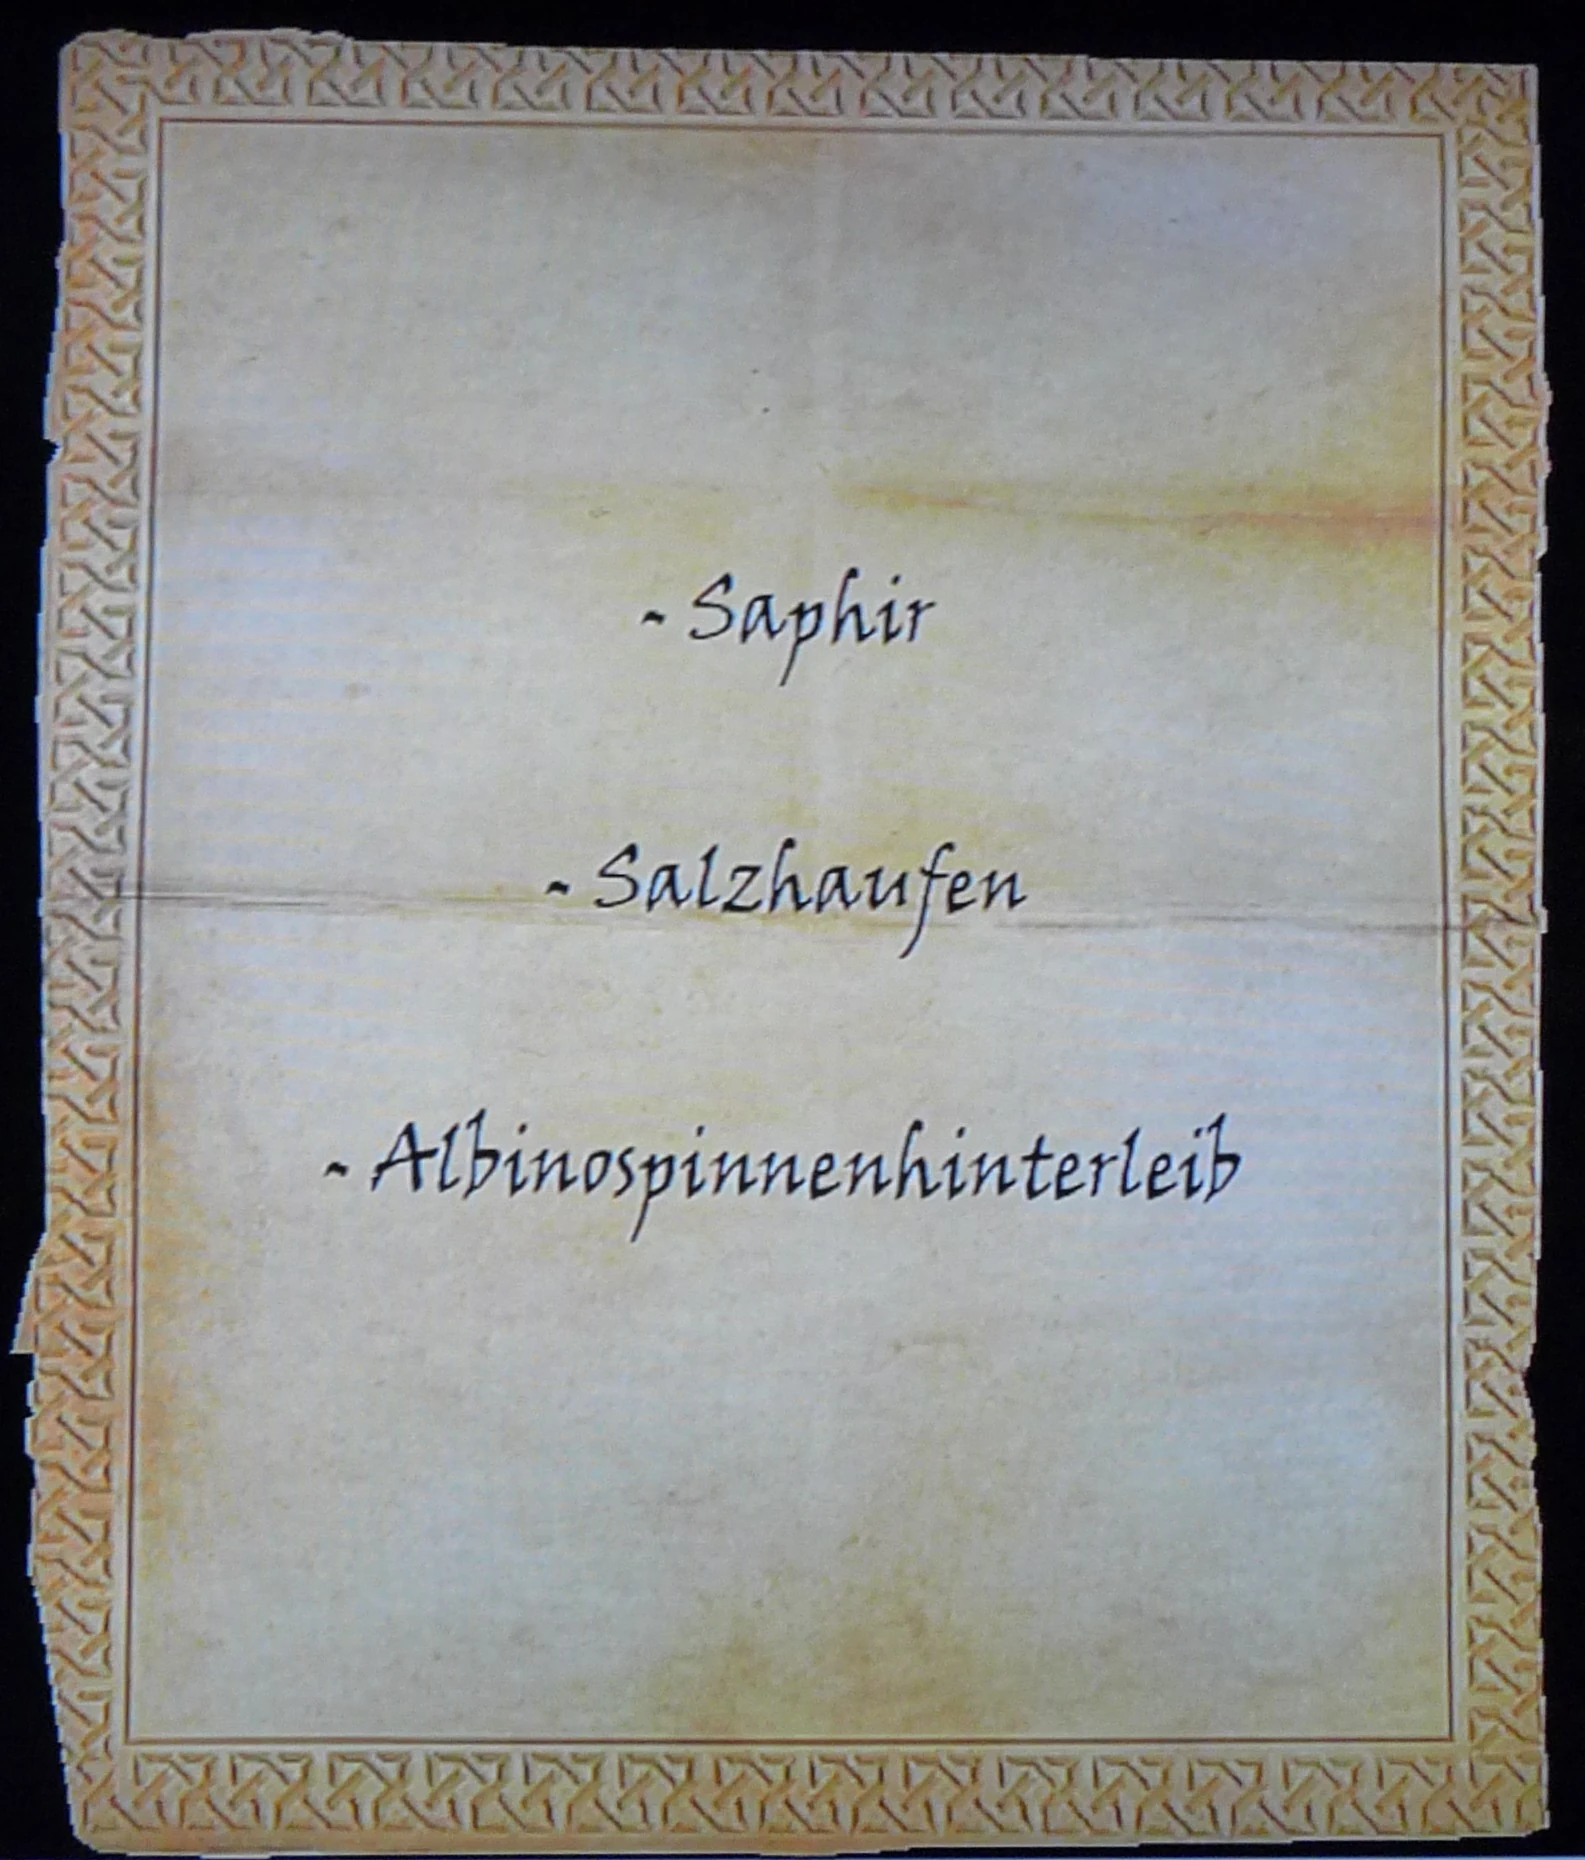 - Saphir
- Salzhaufen
- Albinospinnenhinterleib